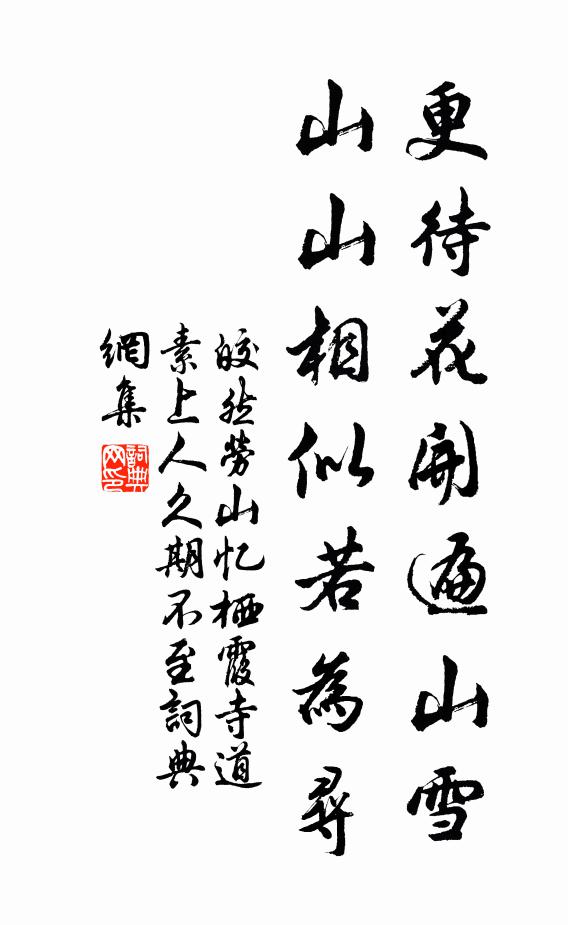 更待花開遍山雪
山山相似若為尋
皎然勞山忆栖霞寺道
素上人久期不至詞典
網集
詞典
网印